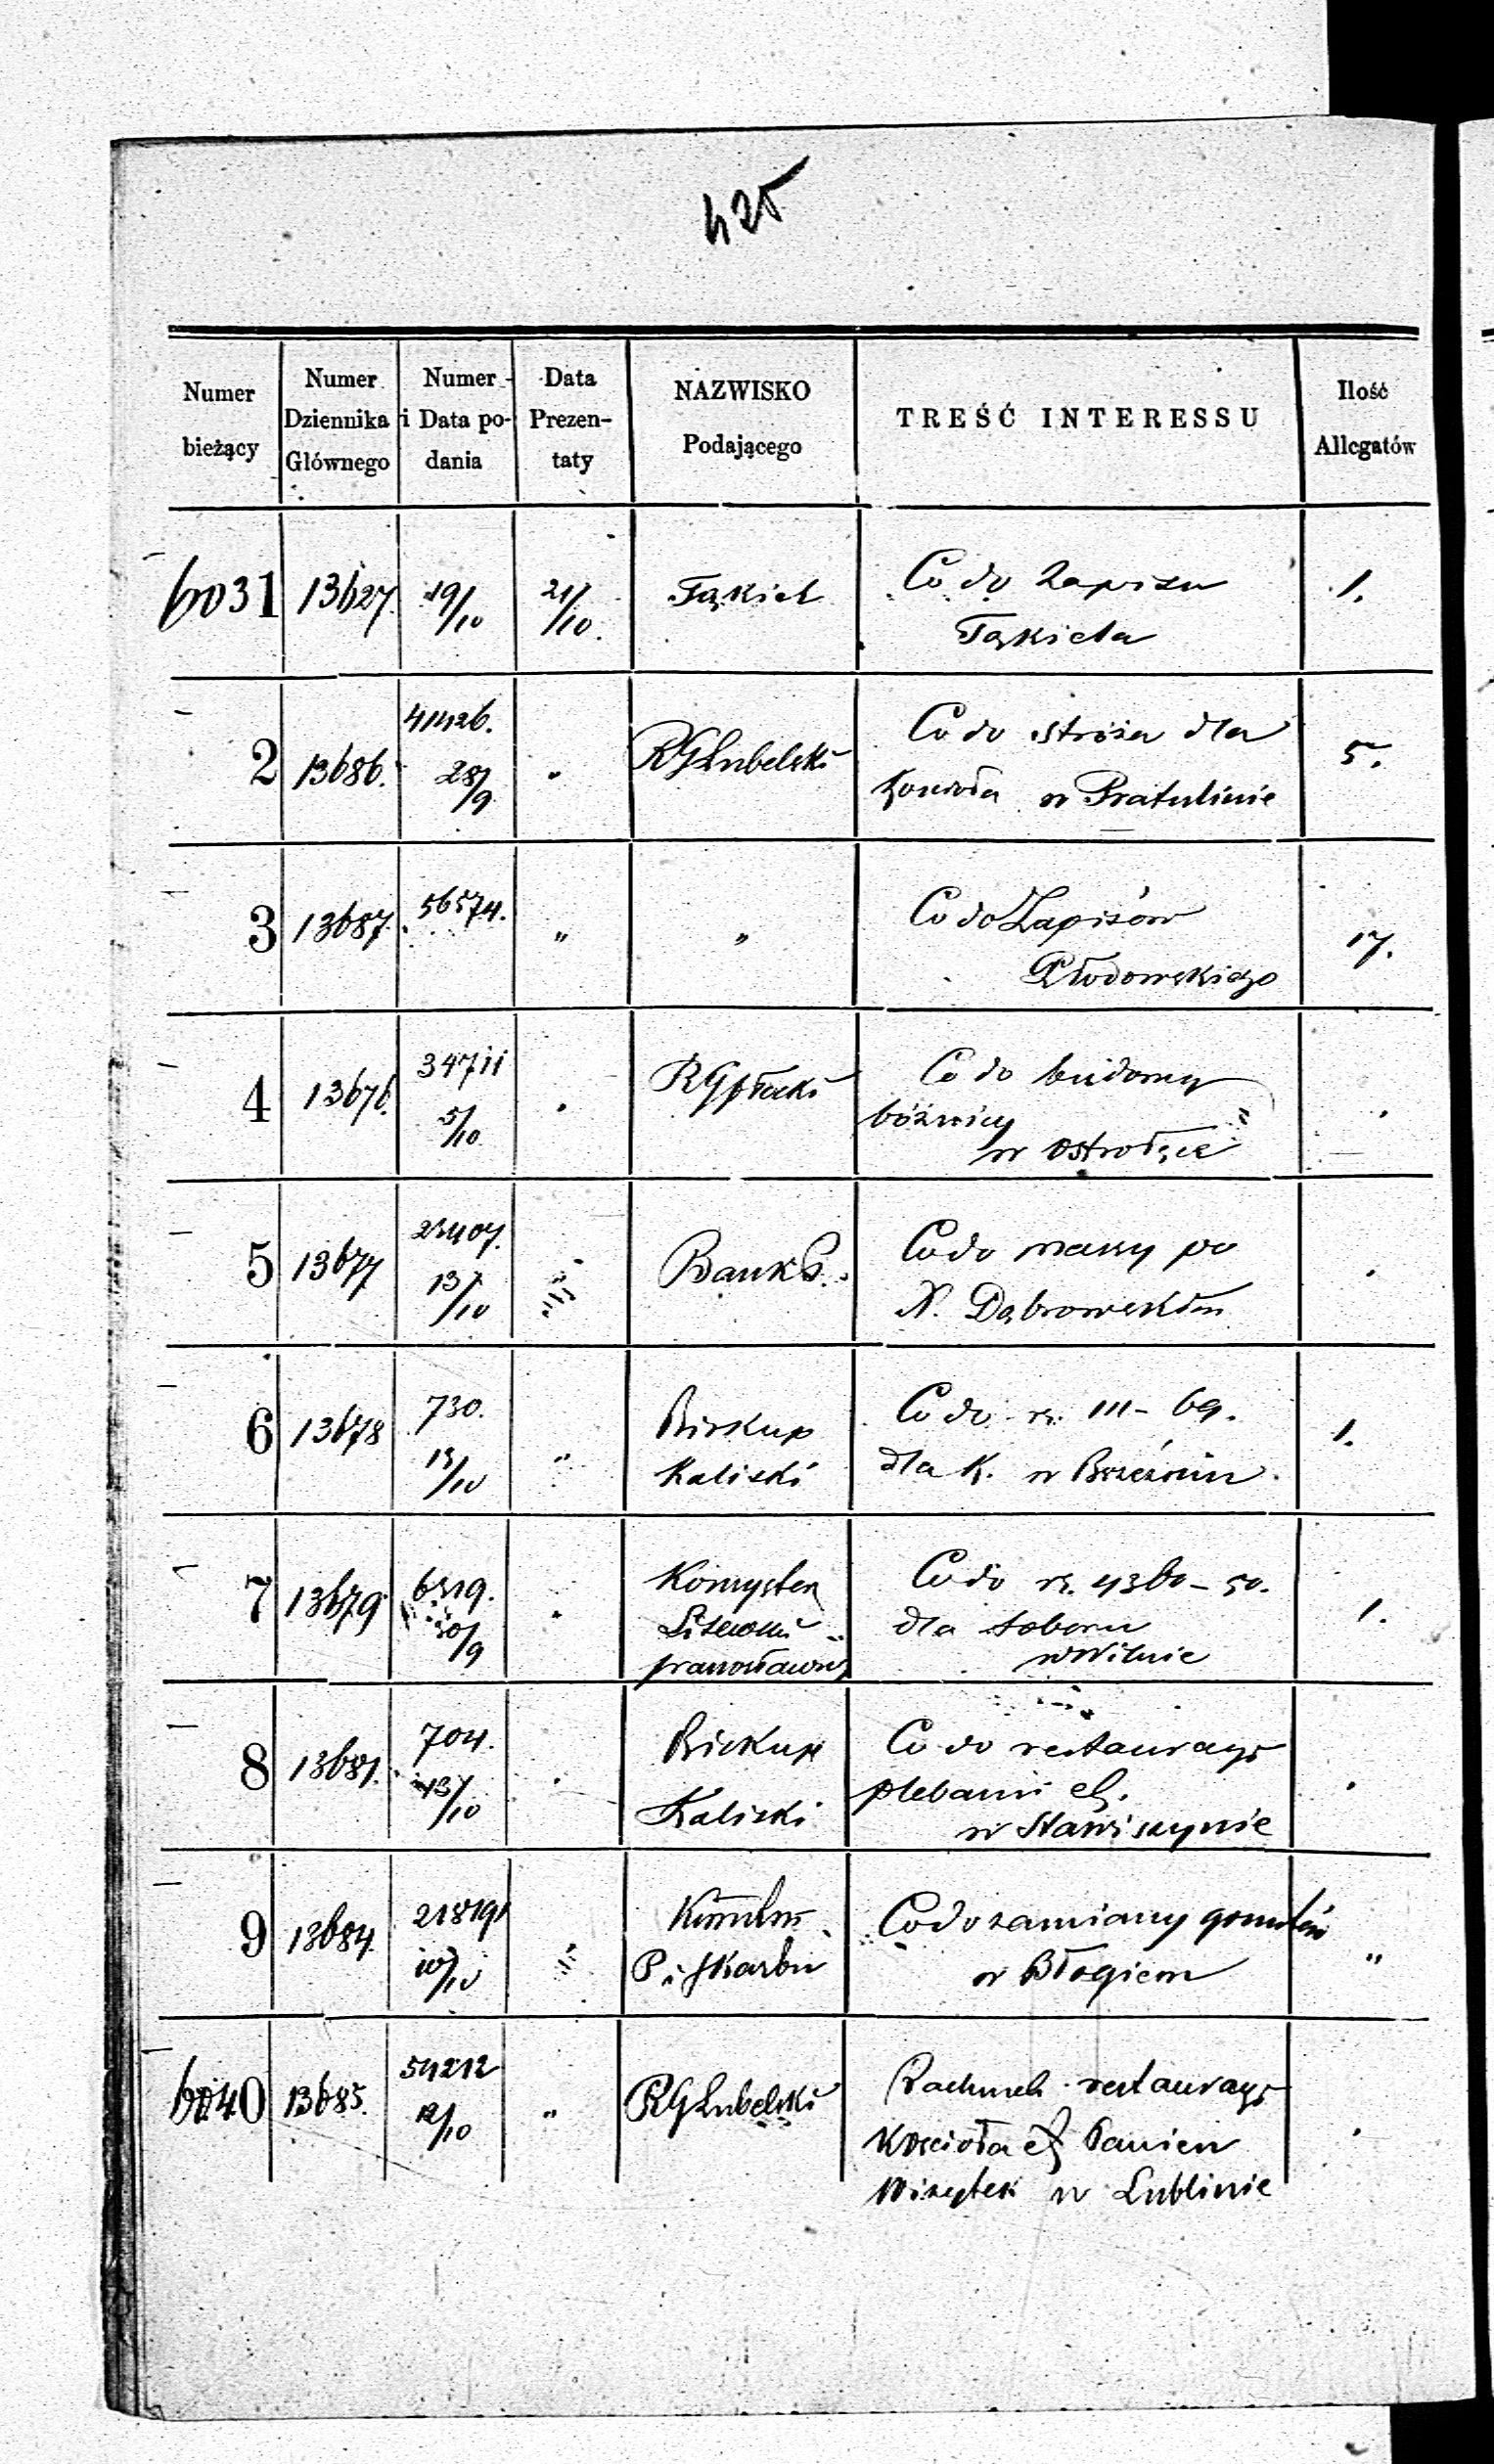 425
Numer bieżący | Numer Dziennika Głównego | Numer i Data podania | Data Prezentaty | NAZWISKO Podającego | TREŚĆ INTERESSU | Ilość Allegatów
6031 | 13627. | 19/10 | 21/10. | Tąkiel | Co do Zapisu
Tąkiela | 1.
2 | 13686. | 41426. 28/9 | " | RGLubelski | Co do stróża dla
Kościoła w Pratulinie | 5.
3 | 13687. | 56574. | " | " | Co do Zapisów
Głodowskiego | 17.
4 | 13676. | 34711 5/10 | " | RGPłocki | Co do budowy
bóżnicy
w Ostrołęce | .
5 | 13677 | 23407. 13/10 | " | Bank P. | Co do massy po
X. Dąbrowskim | .
6 | 13678 | 730. 13/10 | " | Biskup
Kaliski | Co do rs. 111 - 69.
dla K. w Brzeźniu. | 1.
7 | 13679 | 6519. 30/9 | " | Konsystorz
Litewski
prawosławny | Co do rs. 4360 - 50.
dla soboru
w Wilnie | 1.
8 | 13681. | 704. 13/10 | . | Biskup
Kaliski | Co do restauracyi
plebanii
w Stawiszynie | .
9 | 13684. | 218191 10/10 | " | P. i Skarbu | Co do zamiany gruntów
w Błogiem | "
6040 | 13685. | 54212 12/10 | " | RGLubelski | Rachunek restauracyi
Kościoła Panien
Wizytek w Lublinie | .